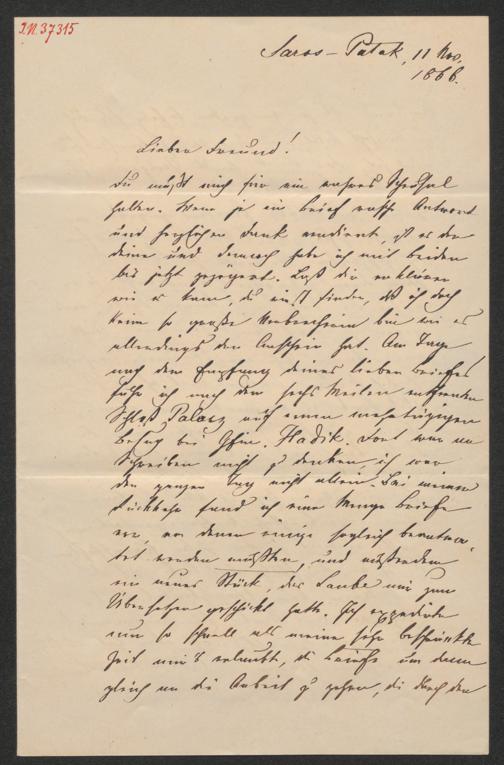 I.N. 37315
Saros-Patak, 11 Nov.
1866.
Lieber Freund!
Du mußt mich für ein wahres Scheusal
halten. Wenn je ein Brief rasche Antwort
und herzlichen Dank verdient, ist es der
deine und dennoch habe ich mit beiden
bis jetzt gezögert. Laß dir erklären
wie es kam, du wirst finden, daß ich doch
kein so großer Verbrecher bin wie es
allerdings den Anschein hat. Am Tage
nach dem Empfang deines lieben Briefes
fuhr ich nach dem sechs Meilen entfernten
Schloß Palocz auf einen mehrtägigen
Besuch bei Gfin. Hadik. Dort war an
Schreiben nicht zu denken, ich war
den ganzen Tag nicht allein. Bei meiner
Rückkehr fand ich eine Menge Briefe
vor, von denen einige sogleich beantwor-
tet werden mußten, und außerdem
ein neues Stück, das Laube mir zum
Übersetzen geschickt hatte. Ich expedirte
nun so schnell als meine sehr beschränkte
Zeit mir's erlaubt, die Briefe um dann
gleich an die Arbeit zu gehen, die durch den